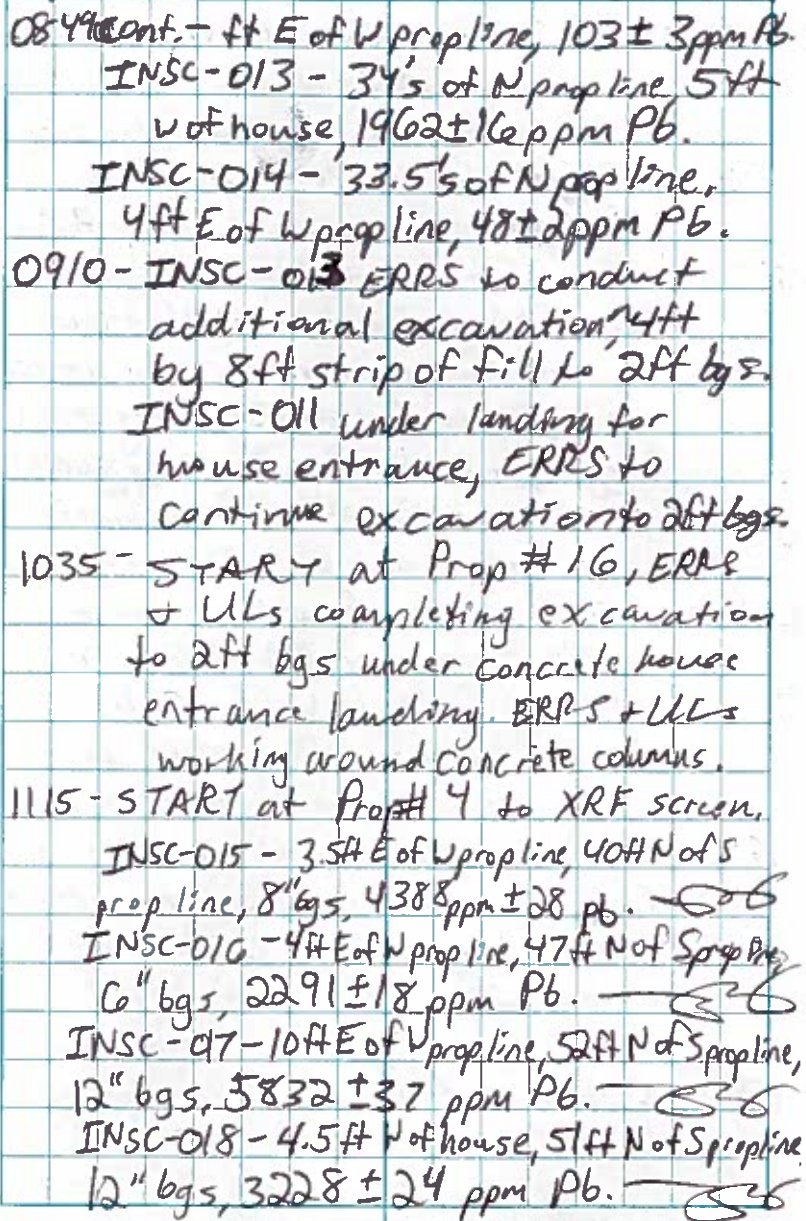 0849 cont. - ft E of W prop line, 103 ± 3 ppm Pb.
INSC-013 - 34's of N prop line, 5 ft
W of house, 1962 ± 16 ppm Pb.
INSC-014 - 33.5's of N prop line,
4 ft E of W prop line, 48 ± 2 ppm Pb.
0910 - INSC-013 ERRS to conduct
additional excavation, ~4ft
by 8ft strip of fill to 2ft bgs.
INSC-011 under landing for
house entrance, ERRS to
continue excavation to 2ft bgs.
1035 - START at Prop #16, ERRS
+ ULs completing excavation
to 2ft bgs under concrete house
entrance landing. ERRS + ULs
working around concrete columns.
1115 - START at Prop# 4 to XRF screen.
INSC-015 - 3.5ft E of W prop line, 40ft N of S
prop line, 8" bgs, 4388 ppm ± 28 pb.
INSC-016 - 4ft E of W prop line, 47ft N of S prop line
6" bgs, 2291 ± 18 ppm Pb.
INSC-017 - 10ft E of W prop line, 52ft N of S prop line,
12" bgs, 5832 ± 37 ppm Pb.
INSC-018 - 4.5ft W of house, 51ft N of S prop line
12" bgs, 3228 ± 24 ppm Pb.